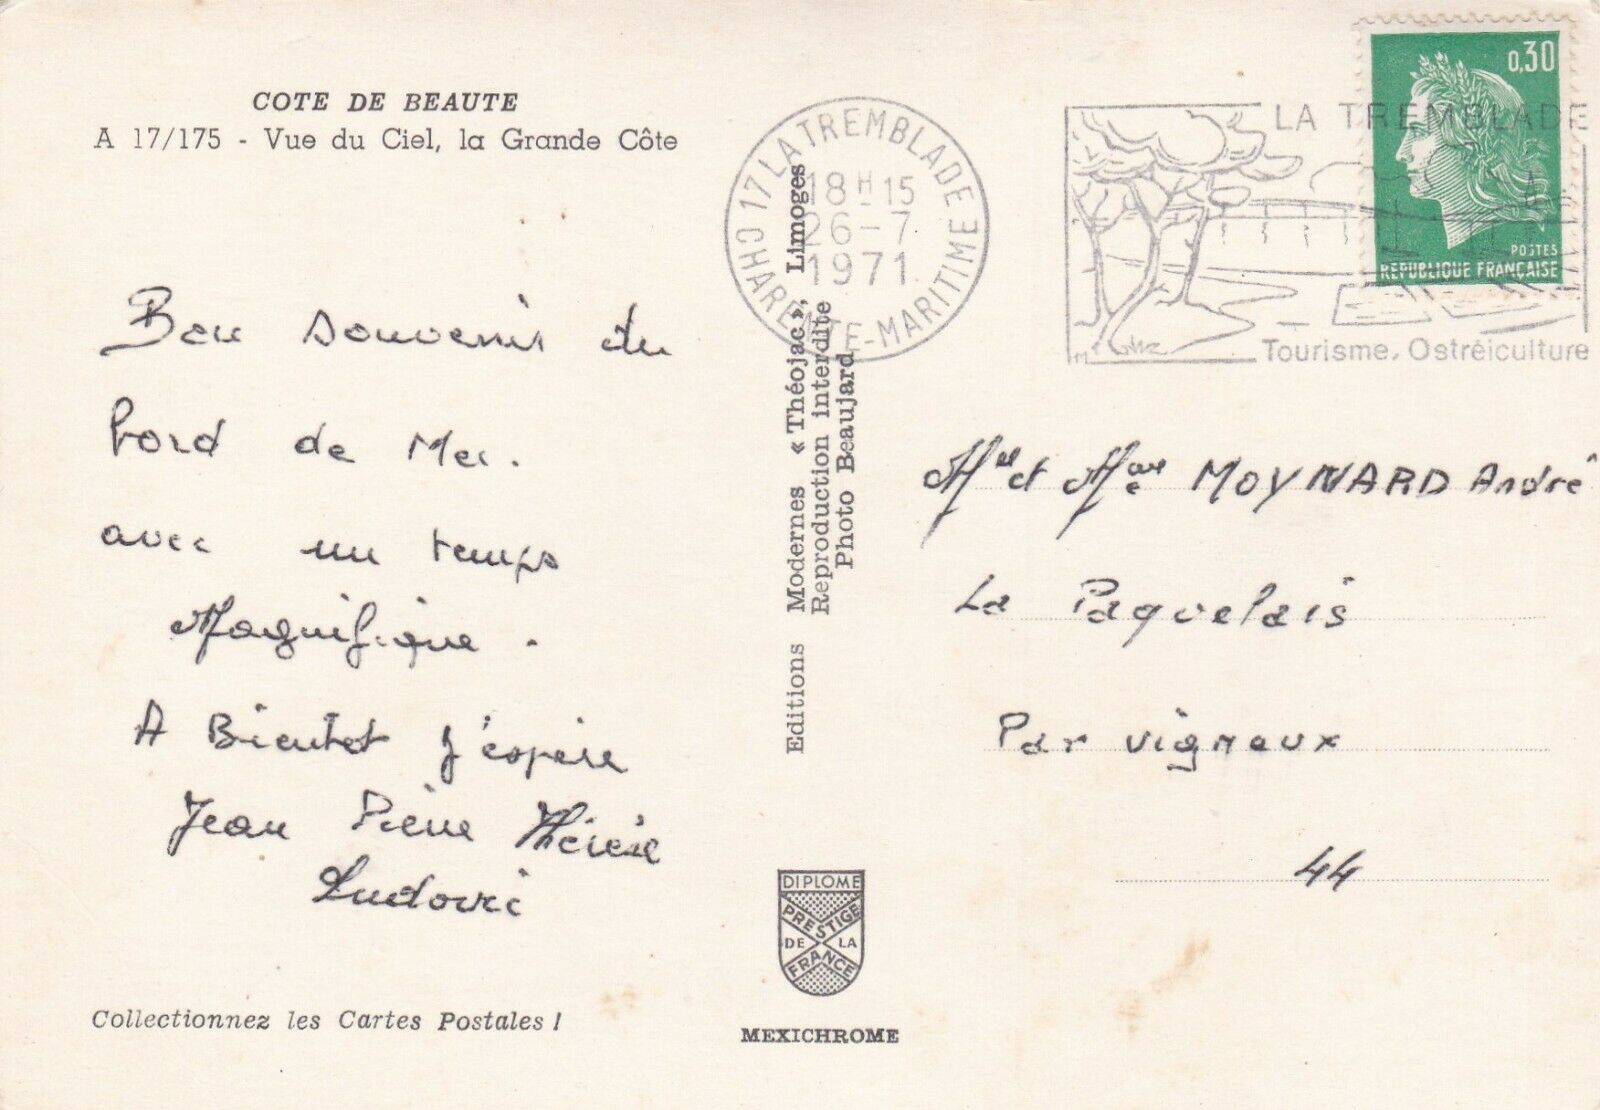 COTE DE BEAUTE
A 17/175 - Vue du Ciel, la Grande Côte
Bon souvenir du
bord de Mer.
avec un temps
Magnifique.
A Bientot j'espère
Jean Pierre Thérèse
Ludovic
Collectionnez les Cartes Postales !
Editions Modernes « Théojac », Limoges
Reproduction interdite
Photo Beaujard
DIPLOME
PRESTIGE
DE LA
FRANCE
MEXICHROME
17 LA TREMBLADE
18H15
26-7
1971
CHARENTE-MARITIME
LA TREMBLADE
Tourisme, Ostréiculture
0,30
POSTES
REPUBLIQUE FRANÇAISE
et MOYNARD André
La Paquelais
Par vigneux
44